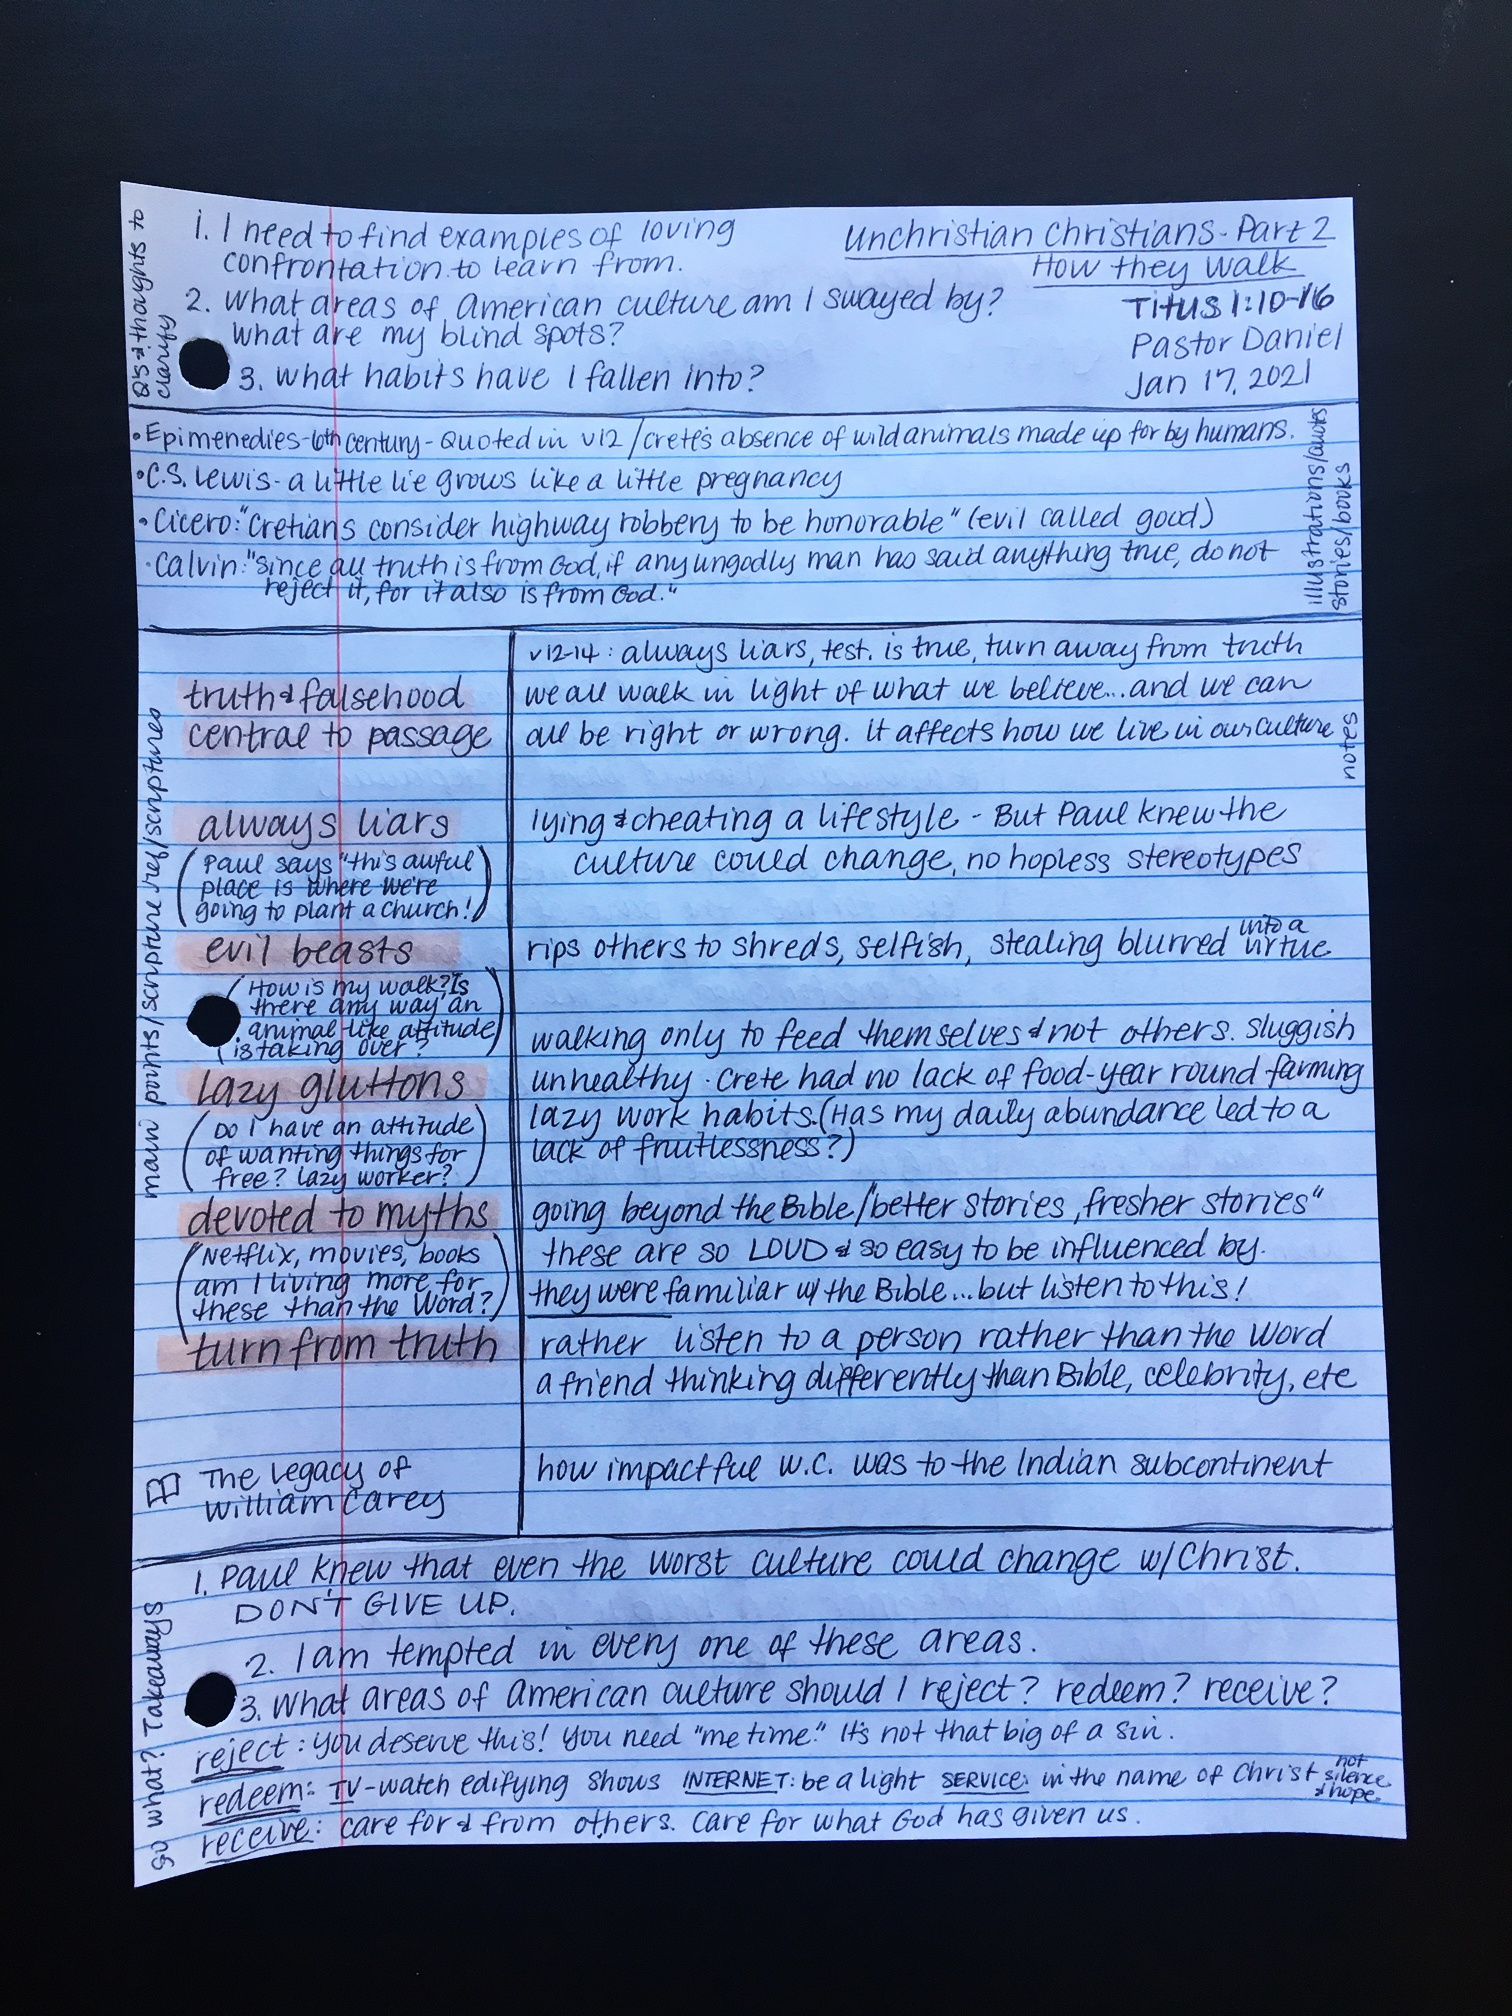 Q's & thoughts to
clarify
1. I need to find examples of loving
confrontation to learn from.
2. What areas of American culture am I swayed by?
What are my blind spots?
3. What habits have I fallen into?
Unchristian Christians - Part 2
How they walk
Titus 1:10-16
Pastor Daniel
Jan 17, 2021
• Epimenedies - 6th century - Quoted in v12 / Crete's absence of wild animals made up for by humans.
• C.S. Lewis - a little lie grows like a little pregnancy
• Cicero: "Cretians consider highway robbery to be honorable" (evil called good)
• Calvin: "since all truth is from God, if any ungodly man has said anything true, do not
reject it, for it also is from God."
illustrations/quotes
stories/books
main points/scripture ref/scriptures
notes
v12-14: always liars, test. is true, turn away from truth
truth & falsehood
we all walk in light of what we believe...and we can
central to passage
all be right or wrong. It affects how we live in our culture
always liars
lying & cheating a lifestyle - But Paul knew the
(Paul says "this awful
place is where we're
going to plant a church!)
culture could change, no hopless stereotypes
evil beasts
rips others to shreds, selfish, stealing blurred into a
virtue
(How is my walk? Is
there any way an
animal-like attitude
is taking over?)
walking only to feed themselves & not others. Sluggish
Lazy gluttons
unhealthy. Crete had no lack of food-year round farming
(Do I have an attitude
of wanting things for
free? lazy worker?)
lazy work habits. (Has my daily abundance led to a
lack of fruitlessness?)
devoted to myths
going beyond the Bible/"better stories, fresher stories"
("Netflix, movies, books
am I living more for
these than the Word?)
these are so LOUD & so easy to be influenced by.
they were familiar w/ the Bible...but listen to this!
turn from truth
rather listen to a person rather than the Word
a friend thinking differently than Bible, celebrity, etc
The Legacy of
William Carey
how impactful W.C. was to the Indian subcontinent
So what? Takeaways
1. Paul knew that even the worst culture could change w/Christ.
DON'T GIVE UP.
2. I am tempted in every one of these areas.
3. What areas of American culture should I reject? redeem? receive?
reject: you deserve this! You need "me time." It's not that big of a sin.
redeem: TV-watch edifying shows INTERNET: be a light SERVICE: in the name of Christ not
silence
& hope.
receive: care for & from others. Care for what God has given us.